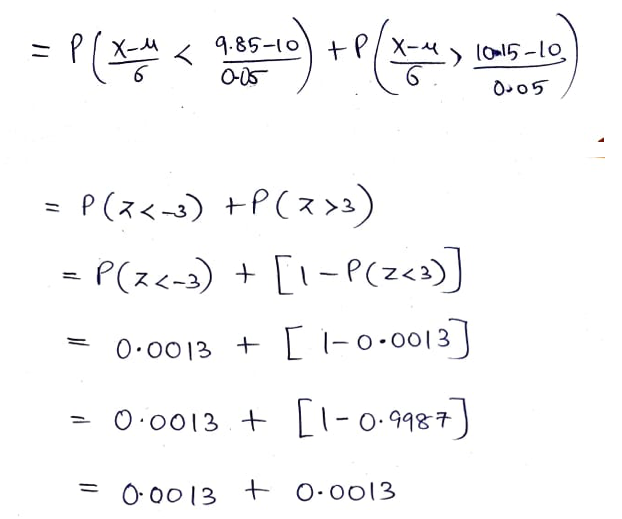 = P(X-μ/σ < 9.85-10/0.05) + P(X-μ/σ > 10.15-10/0.05)
= P(Z<-3) + P(Z>3)
= P(Z<-3) + [1-P(Z<3)]
= 0.0013 + [1-0.0013]
= 0.0013 + [1-0.9987]
= 0.0013 + 0.0013